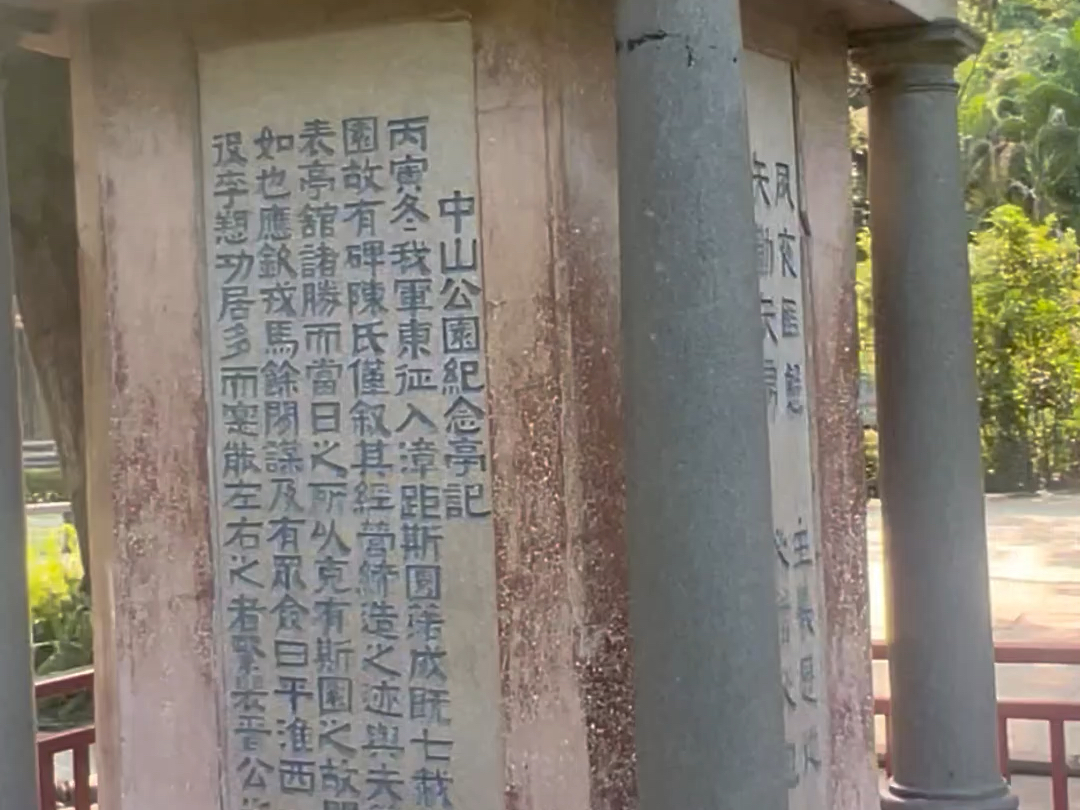 中山公園紀念亭記
丙寅冬我軍東征入漳距斯園落成既七載
園故有碑陳氏僅叙其經營締造之迹與夫
表亭館諸勝而當日之所以克有斯園之故
如也應欽戎馬餘閒謀及有眾僉曰平淮西
役李愬功居多而寔能左右之者繄裴晋公
夙夜匪懈 主義是以
矢勤矢勇